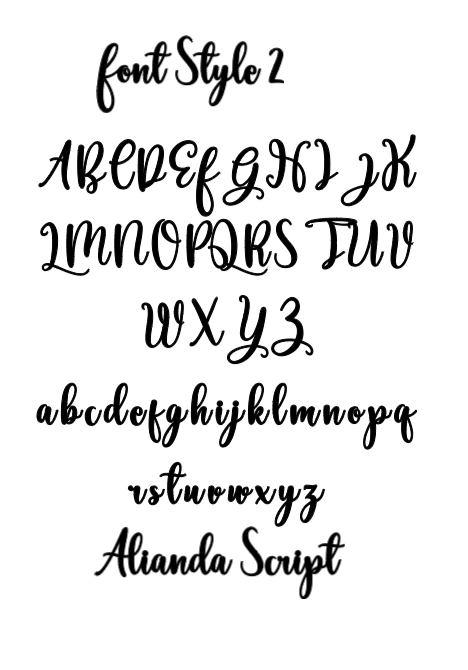 font Style 2
ABCDEFGHIJK
LMNOPQRSTUV
WXYZ
abcdefghijklmnopq
rstuvwxyz
Alianda Script